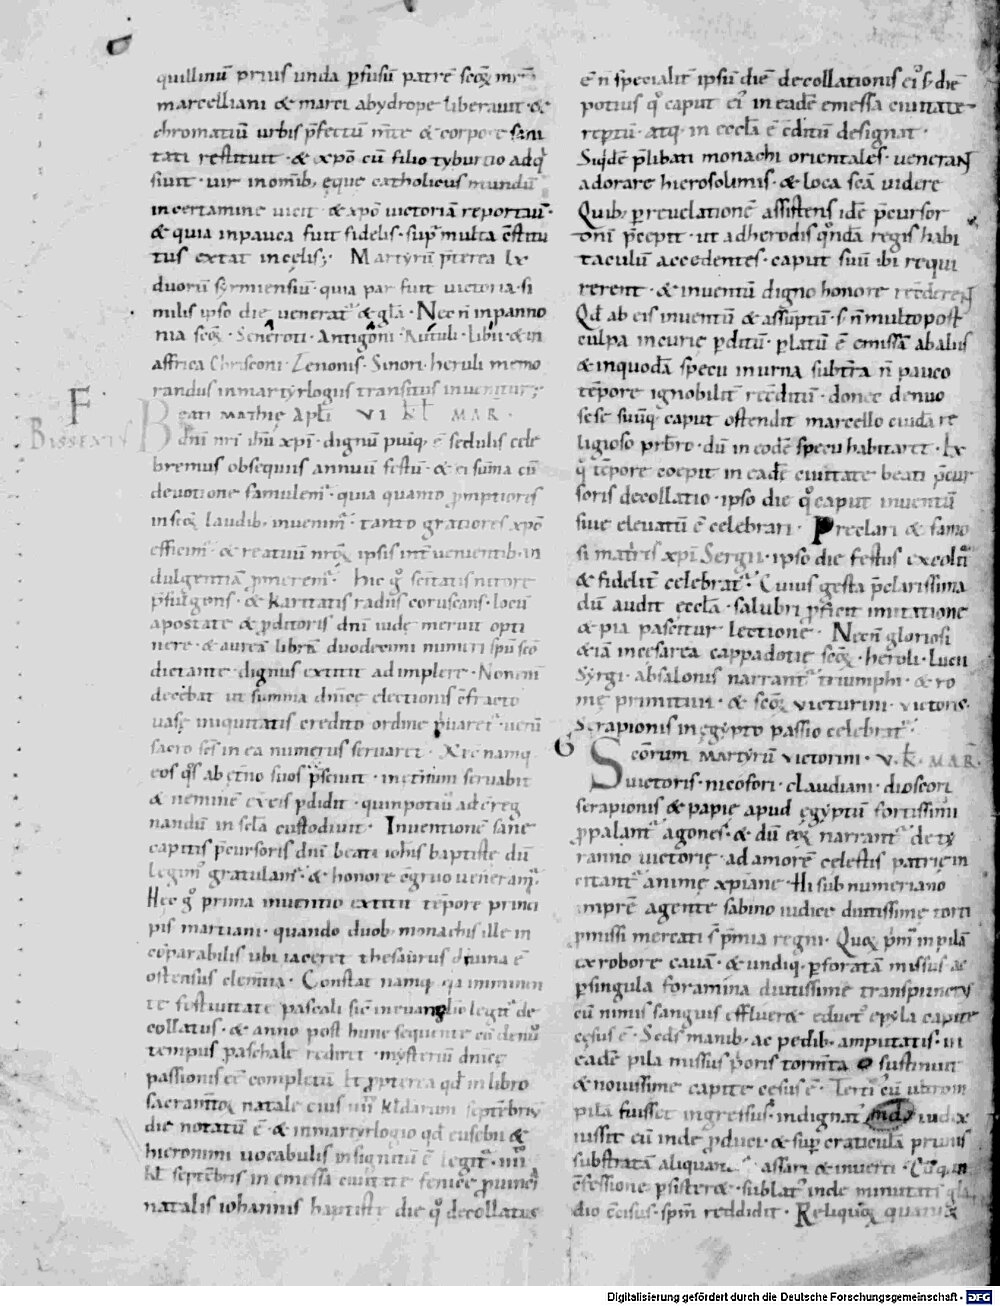 quillinū prius unda pfusū patrē scōꝝ mr̄m
marcelliani & marci abydrope liberavit · &
chromatiū urbis pfectū mte & corpore sani
tati restituit · & xpō cū filio tyburcio adq
siuit · uir in omib; eque catholicus mundū
in certamine uicit · & xpō uictoriā reportauit ·
& quia in pauca fuit fidelis · supra multa c̄stitu
tus extat in celis; Martyrū p̄terea lx
duorū syrmiensiū · quia par fuit uictoria · si
milis ipso die uenerat̄ & gl̄a · Nec n̄ in panno
nia scōꝝ · Seneroti · Antigoni · Rutuli · libii · & in
affrica Chrisconi · Zenonis · Sinori · heruli memo
randus in martyrlogiis transitus inuenitur;
F
Bissextus
Beati mathię apl̄i VI KL̄ MAR ·
dn̄i nr̄i ihū xpī · dignū puiq ē sedulis cele
bremus obsequiis annuū festū · & ei sūma cū
deuotione famulem̄ · quia quanto p̄mptiores
in scōꝝ laudib; inuenim̄ · tanto gratiores xpō
efficim̄ · & reatuū nr̄oꝝ ipsis int̄uenientib; in
dulgentiā p̄merem̄ · Hic g° sc̄itatis nitore
p̄fulgens · & karitatis radiis coruscans · locū
apostate & p̄ditoris dn̄i iudę meruit opti
nere · & aureā librā duodenni numeri spū scō
dictante · dignus extitit adimplere · Non eni
decebat ut summa dn̄icę electionis c̄fracto
uase iniquitatis credito ordine p̄uaret̄ · uerū
sacro scs̄ in ea numerus seruaret̄ · Xr̄c namq;
eos q°s ab ęt̄no suos p̄sciuit · in ęt̄num seruabit
& neminē ex eis p̄didit · quin potiū ad c̄reg
nandū in scl̄a custodiuit · Inuentionē sane
capitis p̄cursoris dn̄i beati iohis baptistę dū
legim̄ gratulam̄ · & honore c̄gruo ueneram̄ ·
Hęc g° prima inuentio extitit tēpore princi
pis martiani · quando duob; monachis ille in
cōparabilis ubi iaceret thesaurus diuina ē
ostensus clem̄tia · Constat namq; qa imminen
te festiuitate pascali sic̄ in euanglio legit̄ de
collatus · & anno post hunc sequente cū denuo
tempus paschale rediret · mysteriū dn̄icę
passionis ē completū Et p̄pterea qd̄ in libro
sacram̄toꝝ natale eius IIII Kl̄darum septēbriū
die notatū ē · & in martyrlogio qd̄ eusebii &
hieronimi uocabulis insignitū ē legit̄ · IIII
kl̄ septēbris in emessa ciuitate fenicę puincię
natalis iohannis baptistę die q° decollatus
ē n̄ specialit̄ ipsū diē decollationis ei° s; diē
potius q° caput ei° in eadē emessa ciuitate
rep̄tū · atq; in eccl̄a ē c̄ditū designat ·
Siqdē p̄libati monachi orientales · ueneran̄t
adorare hierosolimis · & loca scā uidere
Quib; p reuelationē assistens idē p̄cursor
dn̄i p̄cepit · ut ad herodis q°ndā regis habi
taculū accedentes · caput suū ibi requi
rerent · & inuentū digno honore recederent
Qd̄ ab eis inuentū & assūptū · s; n̄ multo post
culpa incurię p̄ditū · p̄latū ē emissā ab aliis
& in quodā specu in urna subt̄ra n̄ pauco
tēpore ignobilit̄ recditū · donec denuo
sese suūq; caput ostendit marcello cuidā re
ligioso pr̄bro · dū in eodē specu habitaret · Ex
q° tēpore coepit in eadē ciuitate beati p̄cur
soris decollatio · ipso die q° caput inuentū
siue eleuatū ē celebrari · Preclari & famo
si mat̄ris xpī Sergii · ipso die festus excolit̄
& fidelit̄ celebrat̄ · Cuius gesta p̄clarissima
dū audit eccl̄a · salubri p̄ficit imitatione
& pia pascitur lectione · Necn̄ gloriosi
&iā in cesarea cappadocię scōꝝ · heroli · lucii
Syrgi · absalonis narrant̄ triumphi · & ro
mę primitiui · & scōꝝ uicturini · uictoris ·
Serapionis in egypto passio celebrat̄ ·
G
Scōrum martyrū uictorini · V · KL̄ · MAR̄ ·
uictoris · nicofori · claudiani · dioscori
serapionis & papię apud egyptū fortissimi
p̄palant̄ agones · & dū eoꝝ narrant̄ de ty
ranno uictorię · ad amorē celestis patrię in
citant̄ animę xpianę · Hi sub numeriano
impr̄e agente sabino iudice diutissime torti
pmissi mercati s̄ p̄mia regni · Quoꝝ p̄m̄ in pilā
ex robore cauā · & undiq; pforatam missus · ac
psingula foramina diutissime transpunctus
cū nimis sanguis efflueret & educt̄ e pyla capite
cęsus ē · Secds̄ manib; ac pedib; amputatis · in
eadē pila missus p̄oris torm̄ta sustinuit
& nouissime capite cęsus ē · Terti° cū ultroni
pilā fuisset ingressus · indignat̄ iudex
iussit eū inde p̄duci · & sup craticulā prunis
substratam aliquan assari & inuerti · Cūq; in
c̄fessione p̄sisteret · sublat̄ inde minutati gla
dio c̄cisus · spm̄ reddidit · Reliquoꝝ quatuor
Digitalisierung gefördert durch die Deutsche Forschungsgemeinschaft - DFG